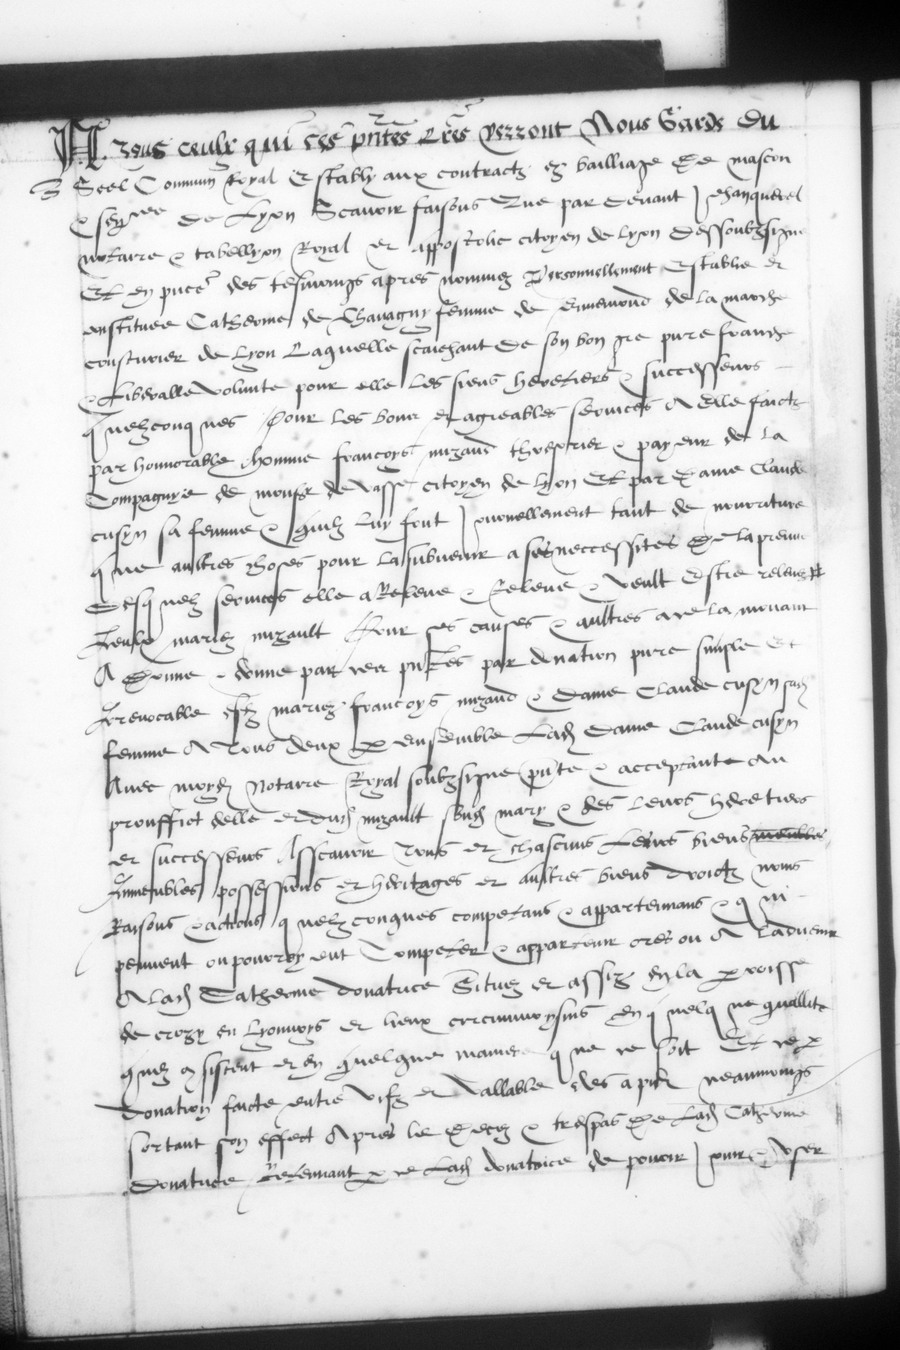 A tous ceulx qui ces pntes lres verront Nous Garde du
Seel Commun Royal estably aux contractz es bailliage de mascon
& sen^ee de Lyon Scavoir faisons Que par devant Jehan quevel
notaire & tabellyon Royal et appostolic citoyen de lyon dessoubzsigne
Et en pnce des tesmoings apres nommez Personnellement establie et
constituee Catherine de Chavagny femme de Ennemond de la marche
cousturier de Lyon Laquelle scaichant de son bon gre pure franche
& liberalle volunte pour elle les siens heretiers & successeurs
quelzconques Pour les bons et agreables services A elle faictz
par honnorable homme francoys mizaud thresorier & payeur de la
Compagnye de monsr de vasse citoyen de lyon Et par dame Claude
cusyn sa femme & quilz luy font Journellement tant de nourriture
que aultres choses pour la subvenir a ses neccessites De la preuve
Desquelz services elle a Releve & Releve & veult estre relevez
Iceulx mariez mizault Pour ces causes & aultres a ce la mouvant
A Donne & donne par ces pntes par donation pure simple et
Irrevocable esdz mariez francoys mizaud & Dame Claude cusyn sad
femme A tous deux & ensemble Lad Dame Claude cusyn
Avec moyd Notaire Royal soubzsigne pnte & acceptante au
prouffict delle et dud mizault sond mary & des leurs heretiers
et successeurs Asscavoir tous et chascuns Leurs biens meubles
Immeubles possessions et heritages et aultres biens droictz noms
Raisons & actions quelzconques competans & appartenans & qui
peuvent ou pourroyent Competer & appartenir ores ou A ladvenir
A Lad Catherine donatrice Situez et assiz En la parroisse
de crozy en Lyonnoys et lieux circumvoysins En quelque quallite
quilz consistent et en quelque maniere que ce soit Et ce par
donation faicte entre vifz et vallable des a pnt neaumoings
sortant son effect Apres le deces & trespas de Lad Catherine
donatrice Retenant par ce Lad donatrice de povoir Jouir & user